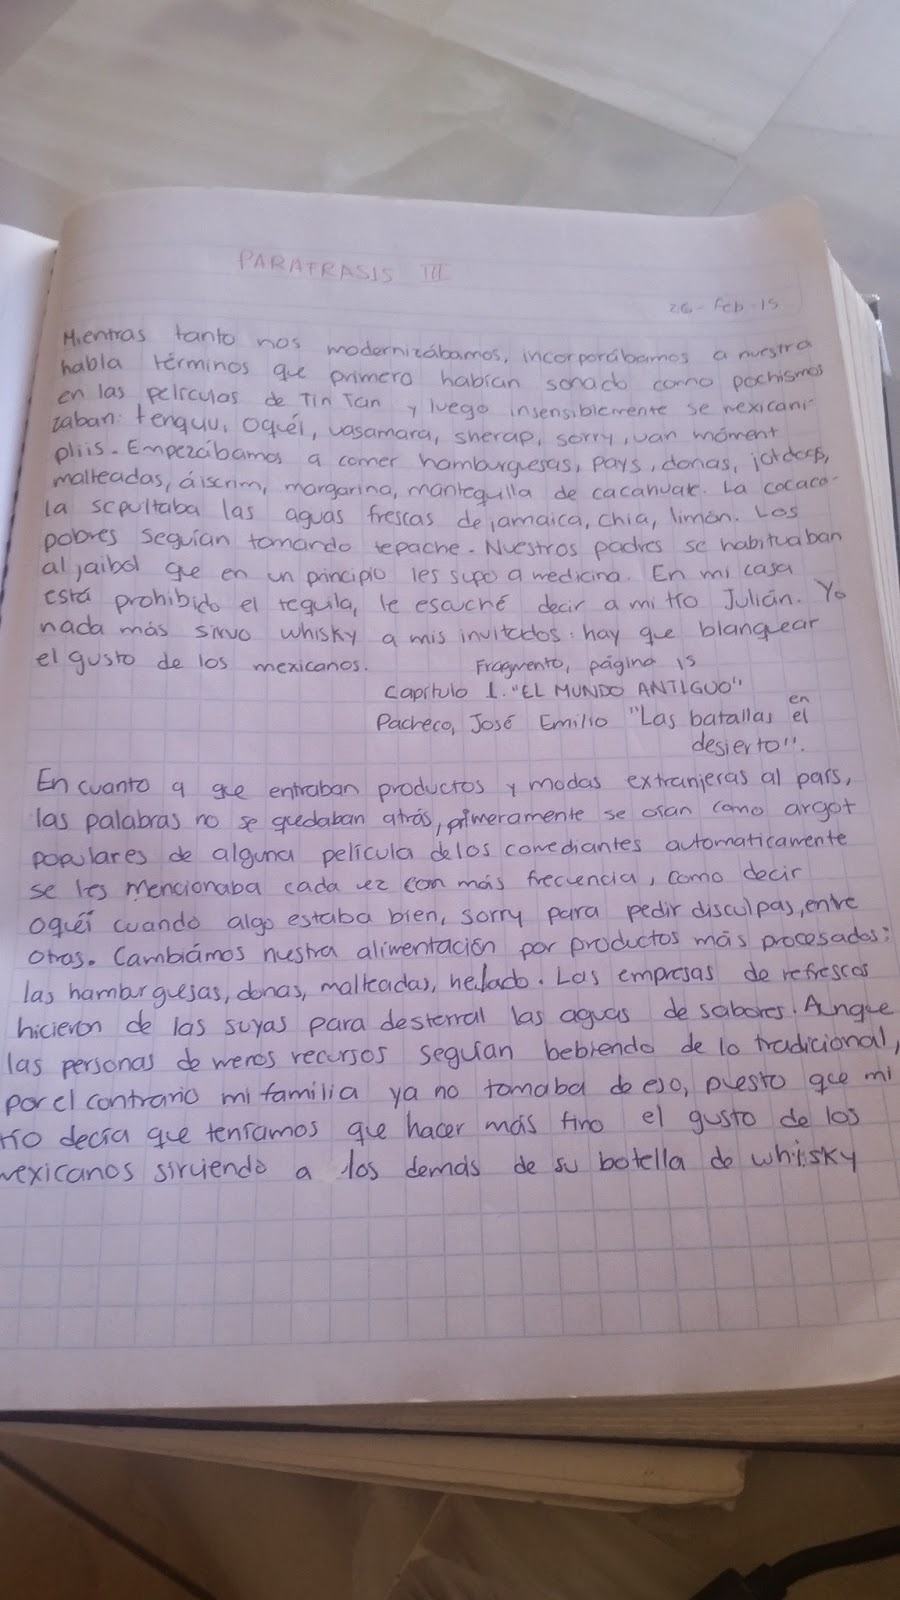 PARAFRASIS III
26-feb-15
Mientras tanto nos modernizábamos, incorporábamos a nuestra
habla términos que primero habían sonado como pochismos
en las películas de Tin Tan y luego insensiblemente se mexicani-
zaban: tenquiu, oquéi, uasamara, sherap, sorry, uan móment
pliis. Empezábamos a comer hamburguesas, pays, donas, jotdogs,
malteadas, áiscrim, margarina, mantequilla de cacahuate. La cocaco-
la sepultaba las aguas frescas de jamaica, chía, limón. Los
pobres seguían tomando tepache. Nuestros padres se habituaban
al jaibol que en un principio les supo a medicina. En mi casa
está prohibido el tequila, le escuché decir a mi tío Julián. Yo
nada más sirvo whisky a mis invitados: hay que blanquear
el gusto de los mexicanos.
Fragmento, página 15
Capítulo 1. "EL MUNDO ANTIGUO"
Pacheco, José Emilio "Las batallas en el
desierto".
En cuanto a que entraban productos y modas extranjeras al país,
las palabras no se quedaban atrás, primeramente se oían como argot
populares de alguna película de los comediantes automaticamente
se les mencionaba cada vez con más frecuencia, como decir
oquéi cuando algo estaba bien, sorry para pedir disculpas, entre
otras. Cambiámos nuestra alimentación por productos más procesados:
las hamburguesas, donas, malteadas, helado. Las empresas de refrescos
hicieron de las suyas para desterrar las aguas de sabores. Aunque
las personas de menos recursos seguían bebiendo de lo tradicional,
por el contrario mi familia ya no tomaba de eso, puesto que mi
tío decía que teníamos que hacer más fino el gusto de los
mexicanos sirviendo a los demás de su botella de whisky